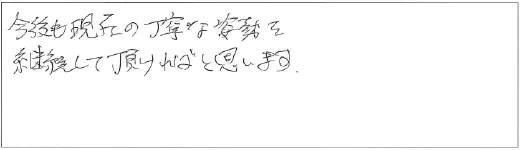 今後も現在の丁寧な姿勢を
継続して頂ければと思います.